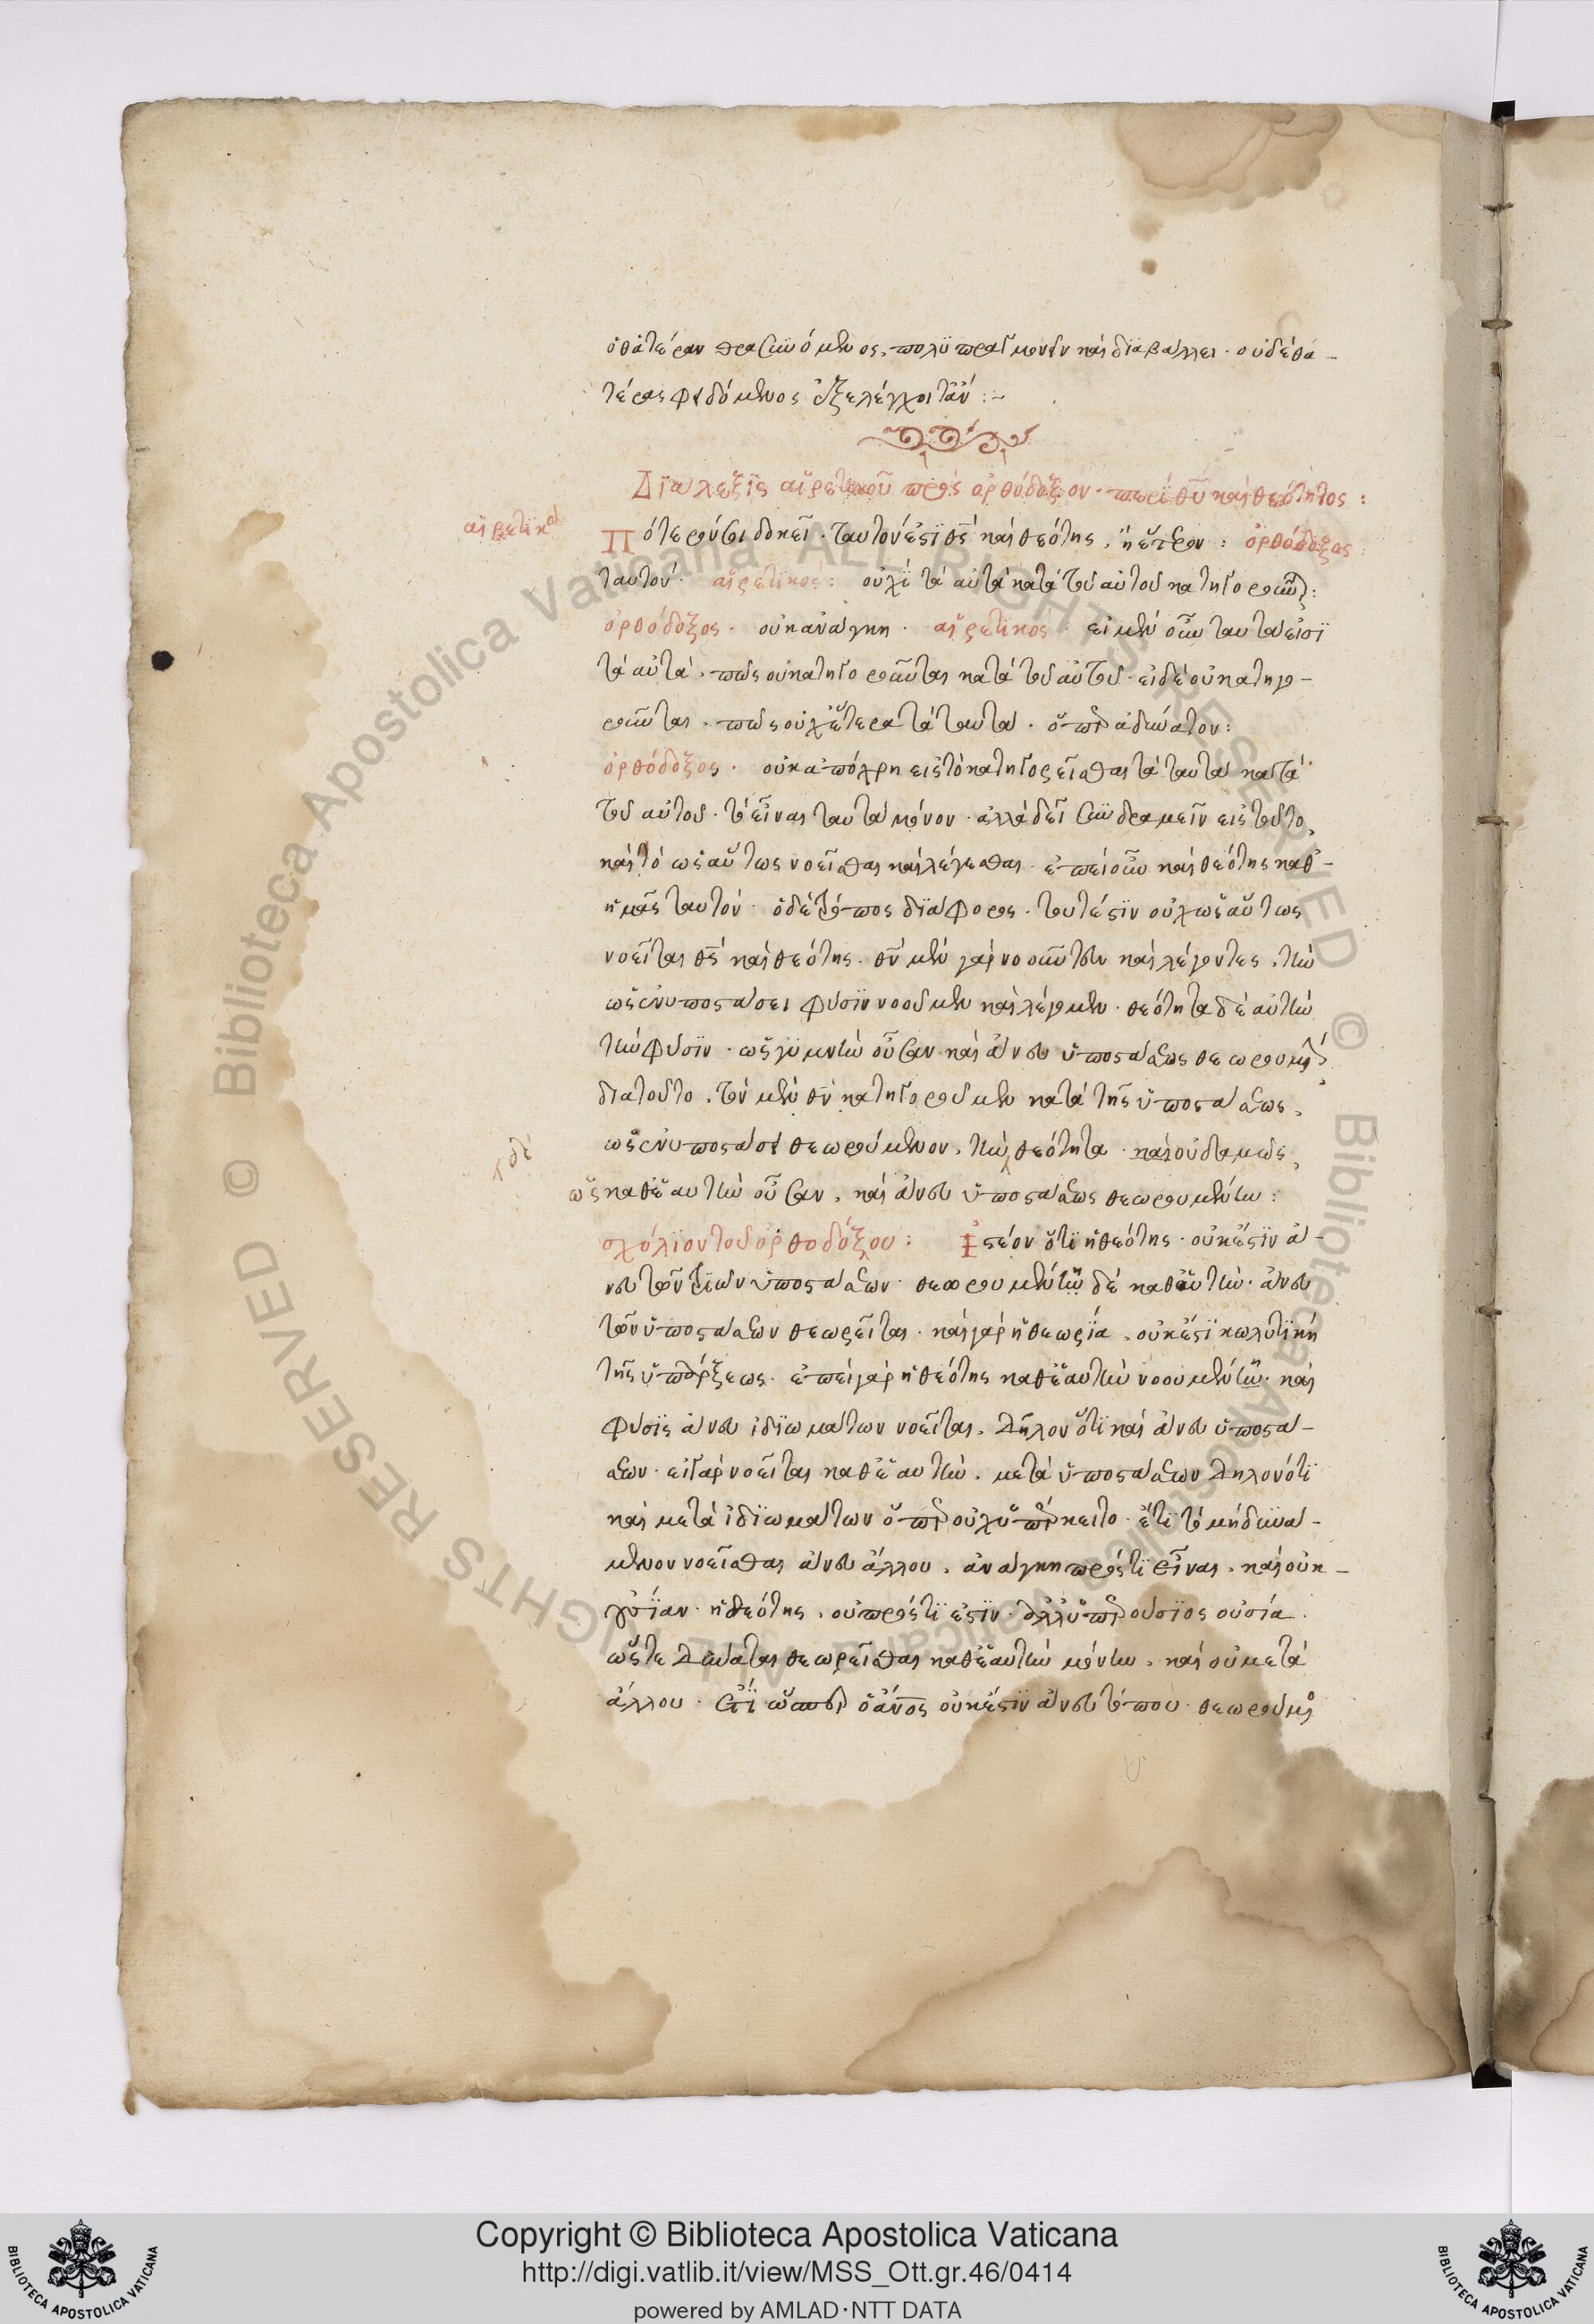 ὁ θἀτέραν θρασυνόμενος, πολυπραγμονεῖν καὶ διαβάλλει· ὁ οὐδὲ θα-
τέρας φειδόμενος ἐξελέγχοιτ' ἄν :~
Διάλεξϊς αἱρετικοῦ πρὸς ὀρθόδοξον· περὶ θῦ καὶ θεότητος :
αἱρετϊκὸς
Πότερόν σοι δοκεῖ· ταυτόν ἐστϊ θς καὶ θεότης, ἢ ἕτερον : ὀρθόδοξος :
ταυτόν· αἱρετϊκός : οὐχὶ τὰ αὐτὰ κατὰ τοῦ αὐτοῦ κατηγοροῦνται :
ὀρθόδοξος· οὐκ ἀνάγκη· αἱρετϊκός· εἰ μὲν οὖν ταυτά εἰσϊ
τὰ αὐτὰ, πῶς οὐ κατηγοροῦνται κατὰ τοῦ αὐτοῦ· εἰ δὲ οὐ κατηγο-
ροῦνται, πῶς οὐχ ἕτερα τὰ ταυτά· ὅπερ ἀδύνατον :
ὀρθόδοξος· οὐκ ἀπόχρη εἰς τὸ κατηγορεῖσθαι τὰ ταυτὰ κατὰ
τοῦ αὐτοῦ· τὸ εἶναι ταυτὰ μόνον· ἀλλὰ δεῖ συνδραμεῖν εἰς τοῦτο,
καὶ τὸ ὡσαύτως νοεῖσθαι καὶ λέγεσθαι· ἐπεὶ οὖν καὶ θεότης καθ'
ἡμᾶς ταυτόν· ὁ δὲ τρόπος διάφορος· τουτέστϊν οὐχ ὡσαύτως
νοεῖται θς καὶ θεότης· θν μὲν γὰρ νοοῦντες καὶ λέγοντες, τὴν
ὡς ἐν ὑποστάσει φύσϊν νοοῦμεν καὶ λέγομεν· θεότητα δὲ αὐτὴν
τὴν φύσϊν· ὡς γυμνὴν οὖσαν καὶ ἄνευ ὑποστάσεως θεωρουμένην
διατοῦτο, τὸν μὲν θν κατηγοροῦμεν κατὰ τῆς ὑποστάσεως,
ὡς ἐν ὑποστάσει θεωρούμενον, τὴν θεότητα· καὶ οὐδαμῶς,
τ δὲ
ὡς καθ' ἑαυτὴν οὖσαν, καὶ ἄνευ ὑποστάσεως θεωρουμένην :
σχόλϊον τοῦ ὀρθοδόξου : Ἰστέον ὅτϊ ἡ θεότης· οὐκ ἔστϊν ἄ-
νευ τῶν τριῶν ὑποστάσεων· θεωρουμένη δὲ καθ' αὑτὴν· ἄνευ
τῶν ὑποστάσεων θεωρεῖται· καὶ γὰρ ἡ θεωρία, οὐκ ἔστϊ κωλυτϊκὴ
τῆς ὑπάρξεως· ἐπεὶ γὰρ ἡ θεότης καθ' ἑαυτὴν νοουμένη· καὶ
φύσϊς ἄνευ ἰδϊωμάτων νοεῖται, δῆλον ὅτϊ καὶ ἄνευ ὑποστά-
σεων· εἰ γὰρ νοεῖται καθ' ἑαυτὴν, μετὰ ὑποστάσεων δηλονότϊ
καὶ μετὰ ἰδϊωμάτων ὅπερ οὐχ ὑπέκειτο· ἔτι τὸ μὴ δυνά-
μενον νοεῖσθαι ἄνευ ἄλλου, ἀνάγκη πρός τϊ εἶναι, καὶ οὐκ
οὐσΐαν· ἡ θεότης, οὐ πρός τϊ ἐστϊν· ἀλλ' ὑπερούσϊος οὐσία.
ὥστε δύναται θεωρεῖσθαι καθ' ἑαυτὴν μόνην, καὶ οὐ μετὰ
ἄλλου· ἔτϊ ὥσπερ ὁ ἄνος οὐκ ἔστϊν ἄνευ τόπου· θεωρούμενος